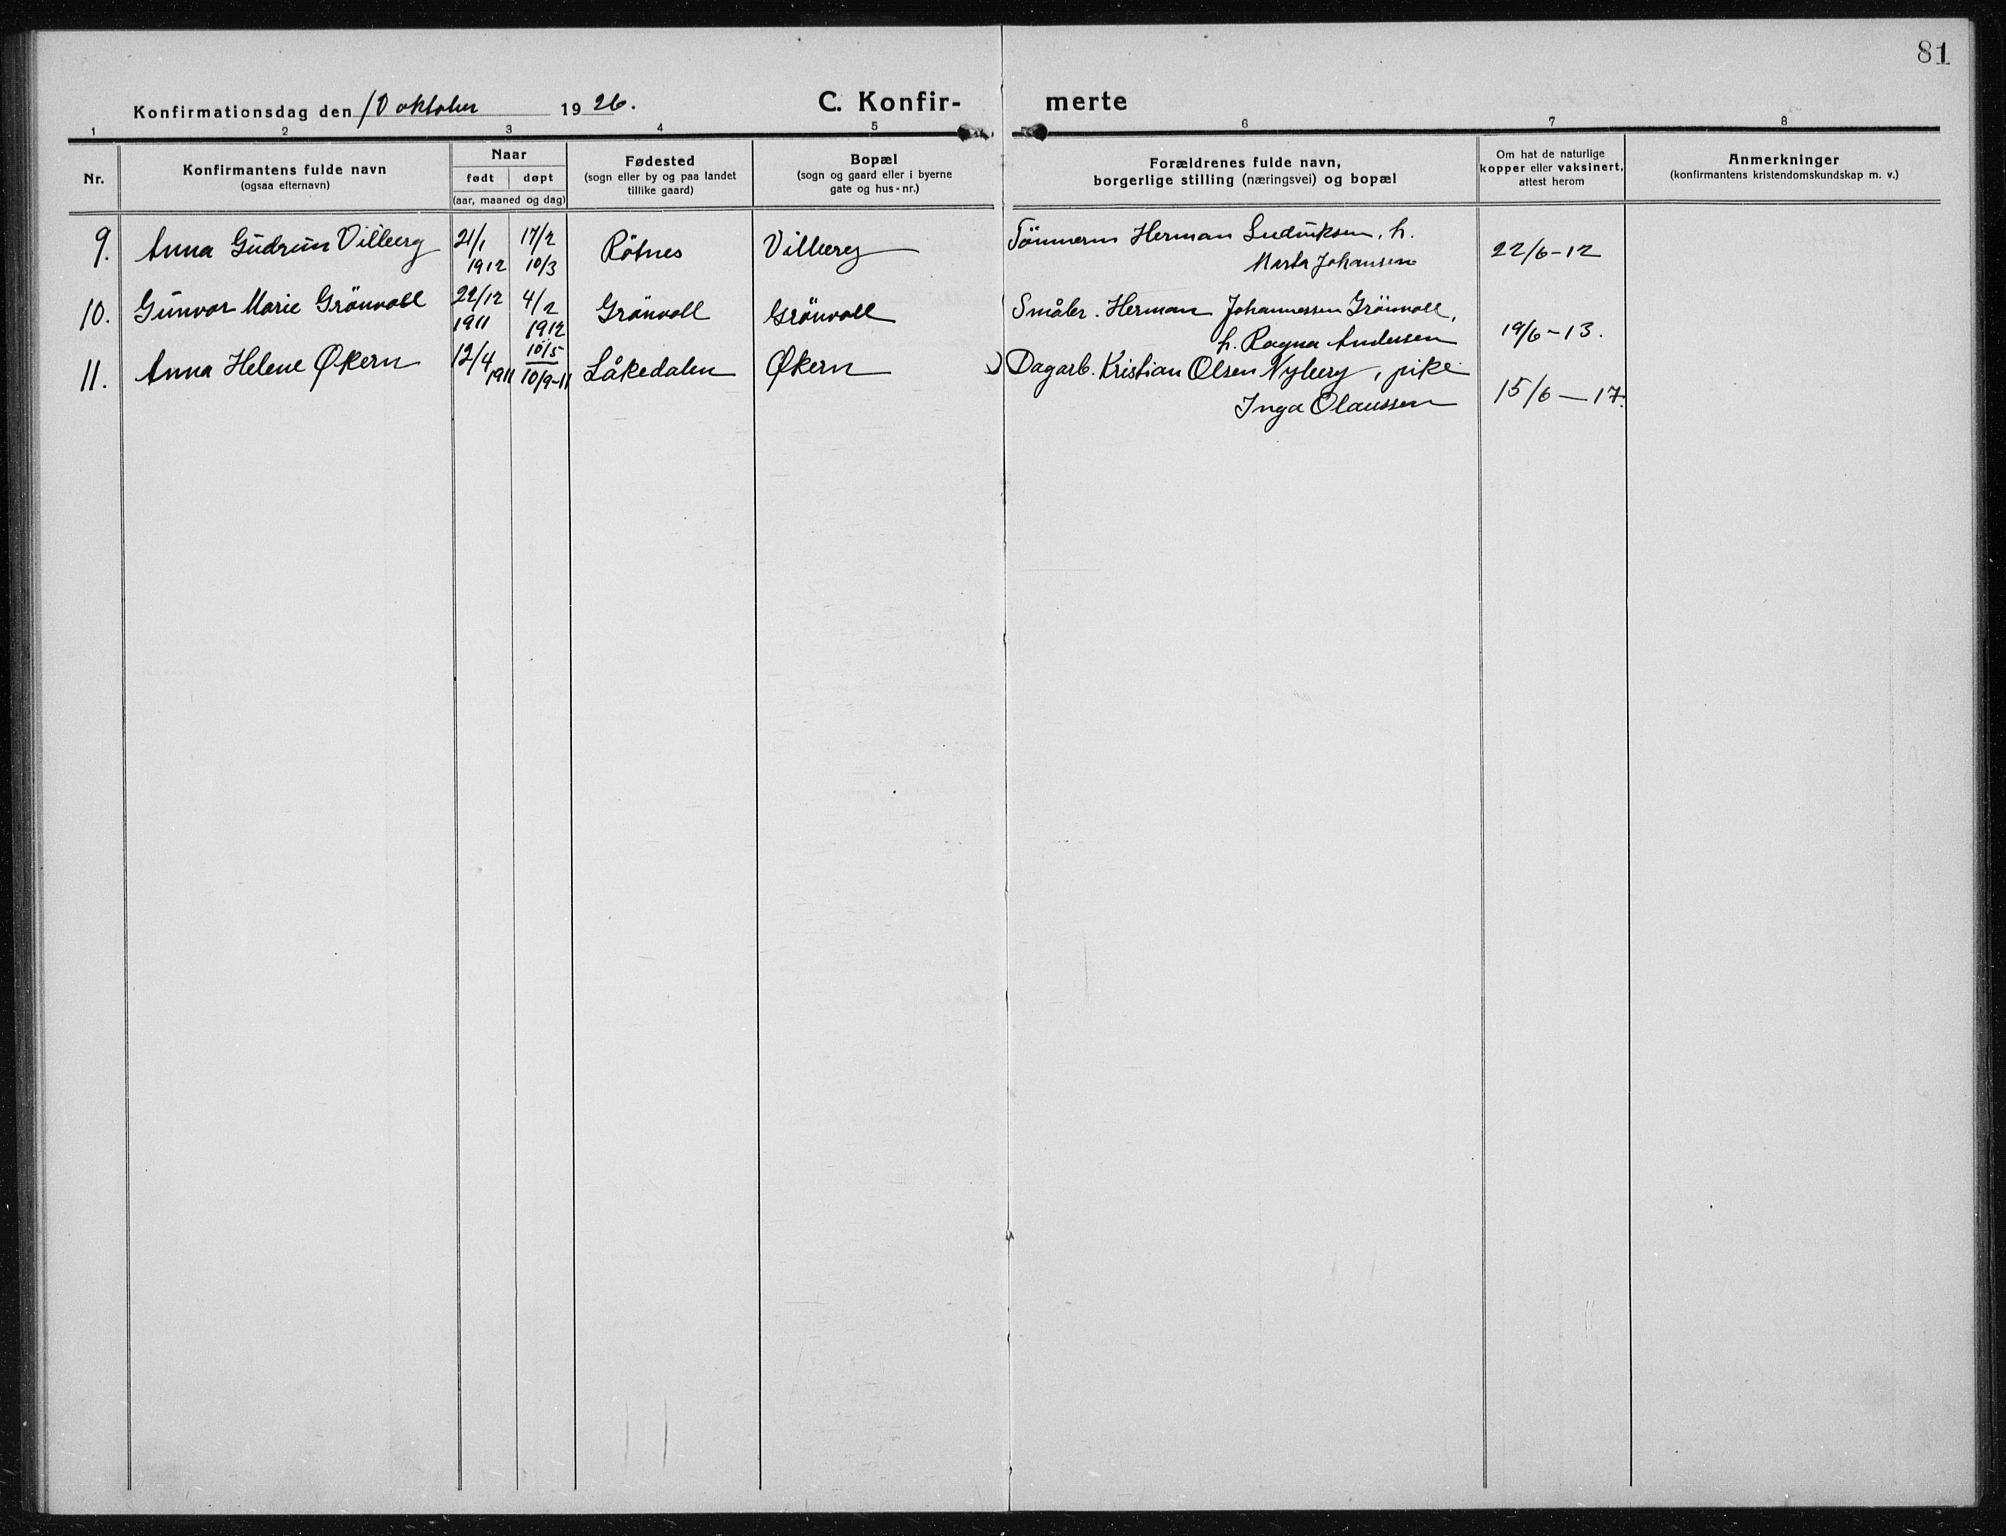 81
Konfirmationsdag den 10 oktober 1926.
C. Konfir- merte
1 2 3 4 5 6 7 8
Nr.
Konfirmantens fulde navn
(ogsaa efternavn)
Naar
født døpt
(aar, maaned og dag)
Fødested
(sogn eller by og paa landet
tillike gaard)
Bopæl
(sogn og gaard eller i byerne
gate og hus-nr.)
Forældrenes fulde navn,
borgerlige stilling (næringsvei) og bopæl
Om hat de naturlige
kopper eller vaksinert,
attest herom
Anmerkninger
(konfirmantens kristendomskundskap m. v.)
9. Anna Gudrun Vilberg 21/1 1912 17/2 10/3 Røtnes Vilberg Herman Ludviksen, h.
Marta Johansen 22/6-12
10. Gunvor Marie Grönvoll 22/12 1911 4/2 1912 Grönvoll Grönvoll Småbr. Herman Johannessen Grönvoll,
h. Ragna Andersen 19/6-13.
11. Anna Helene Økern 12/4 1911 10/5 10/9-11 Låkedalen Økern Dagarb. Kristian Olsen Nyberg, pike
Inga Olaussen 15/6-17.